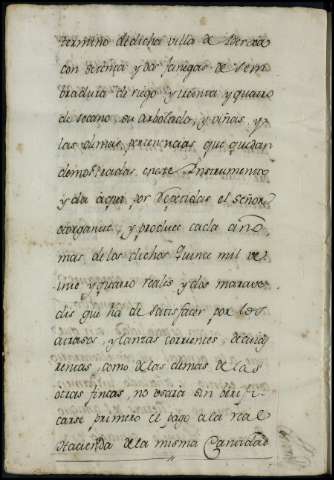 termino de dicha villa de
con setenta y dos fanegas de Sem
bradura de riego y treinta y quatro
de secano, su arbolado, y viñas, y
las demas pertenencias que quedan
demostradas en este Instrumento
y da aqui por repetidas el señor
otorgante, y produce cada año
mas de los dichos quince mil ve
inte y quatro reales y dos marave
dis que ha de satisfacer por los
atrasos, y lanzas corrientes, de cuias
rentas, como de las demas de las
otras fincas, no usará sin verifi
carse primero el pago a la real
Hacienda de la misma Cantidad